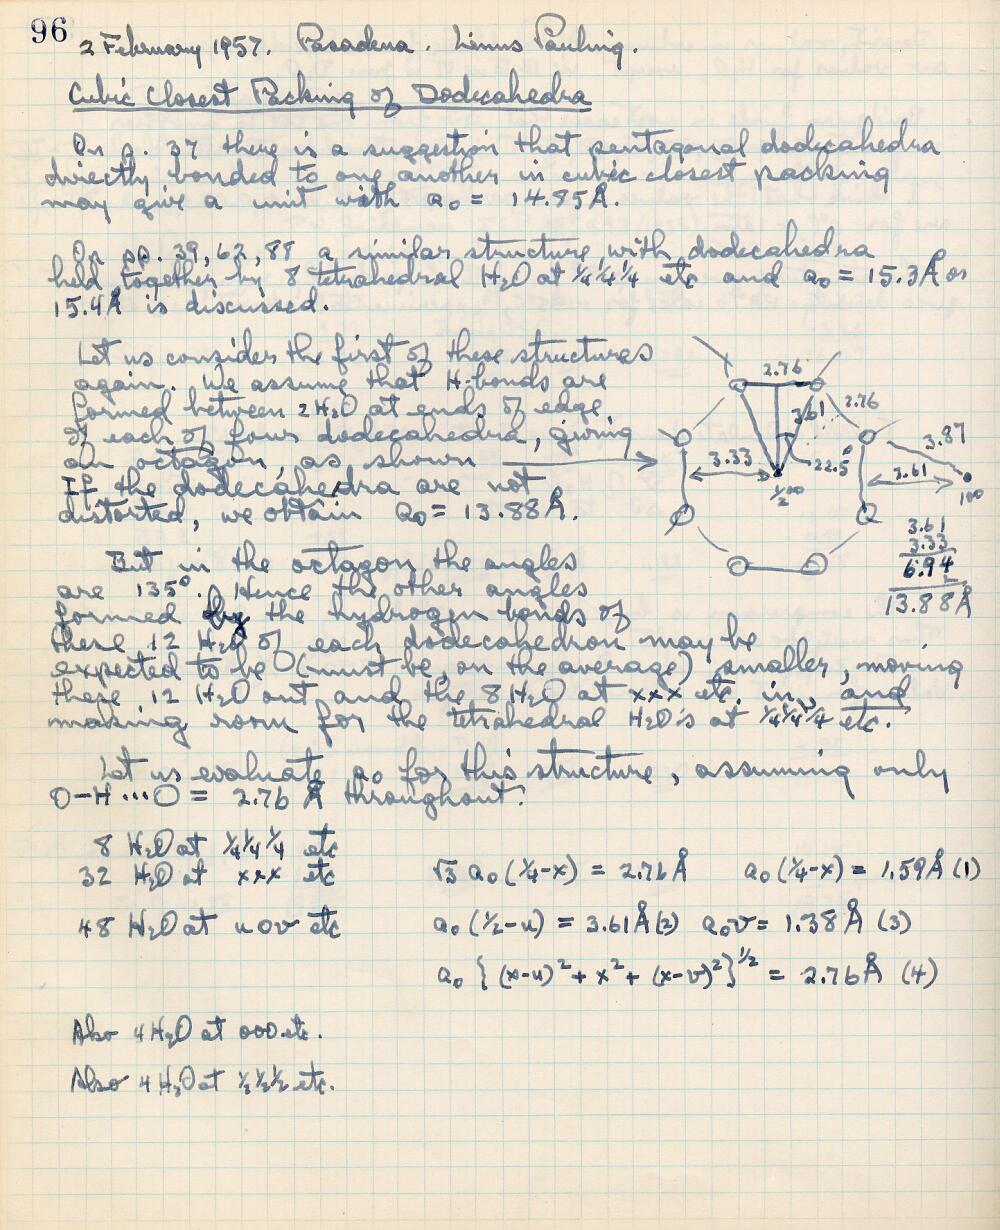 96
2 February 1957. Pasadena. Linus Pauling.
Cubic Closest Packing of Dodecahedra
On p. 37 there is a suggestion that pentagonal dodecahedra
directly bonded to one another in cubic closest packing
may give a unit with a₀ = 14.95Å.
On pp. 39, 62, 88 a similar structure, with dodecahedra
held together by 8 tetrahedral H₂O at ¼¼¼ etc and a₀ = 15.3Å or
15.4Å is discussed.
Let us consider the first of these structures
again. We assume that H-bonds are
formed between 2H₂O at ends of edge
of each of four dodecahedra, giving
an octagon, as shown
If the dodecahedra are not
distorted, we obtain a₀ = 13.88Å.
2.76
3.61
2.76
3.87
3.33
22.5°
3.61
½00
100
3.61
3.33
6.94
2
13.88Å
But in the octagon the angles
are 135°. Hence the other angles
formed by the hydrogen bonds of
these 12 H₂O of each dodecahedron may be
expected to be (must be, on the average) smaller, moving
these 12 H₂O out and the 8 H₂O at xxx etc. in, and
making room for the tetrahedral H₂O's at ¼¼¼ etc.
Let us evaluate a₀ for this structure, assuming only
O-H···O = 2.76 Å throughout.
8 H₂O at ¼¼¼ etc
32 H₂O at xxx etc √3 a₀(¼-x) = 2.76Å a₀(¼-x) = 1.59Å (1)
48 H₂O at uov etc a₀(½-u) = 3.61Å (2) a₀v = 1.38Å (3)
a₀ {(x-u)² + x² + (x-v)²}^½ = 2.76Å (4)
Also 4H₂O at 000 etc.
Also 4H₂O at ½½½ etc.